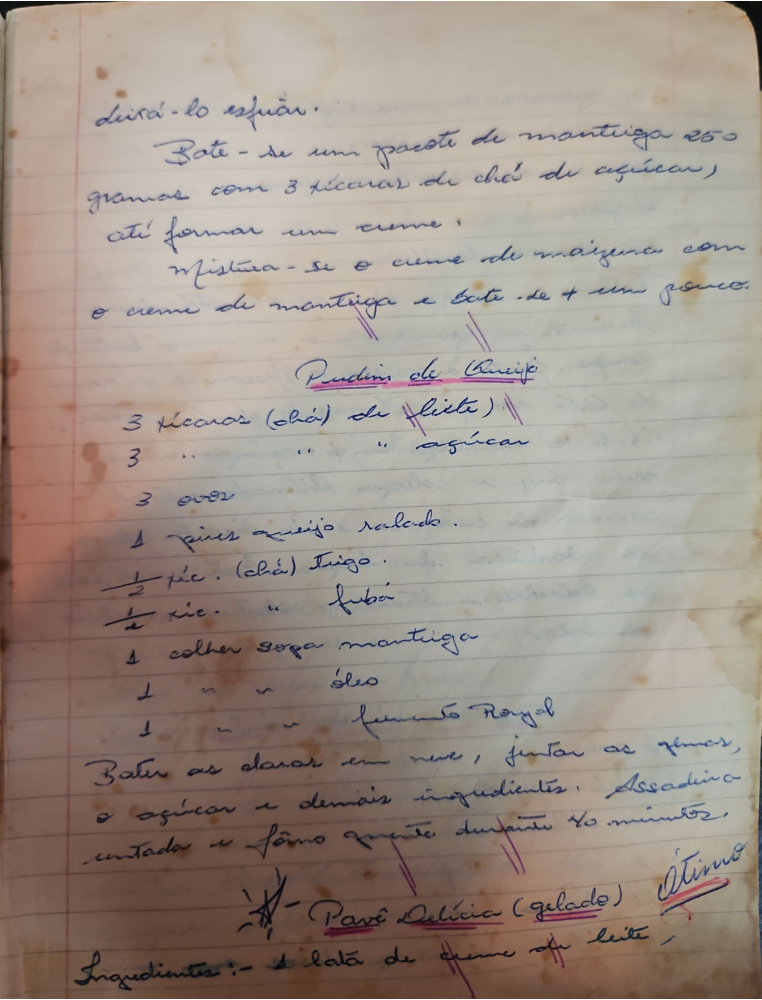 deixá-lo esfriar.
Bate-se um pacote de manteiga 250
gramas com 3 xícaras de chá de açúcar,
até formar um creme.
Mistura-se o creme de maizena com
o creme de manteiga e bate-se + um pouco.
Pudim de Queijo
3 xícaras (chá) de leite)
3 " " " açúcar
3 ovos
1 pires queijo ralado.
1/2 xíc. (chá) trigo.
1/2 xíc. " fubá
1 colher sopa manteiga
1 " " óleo
1 " " fermento Royal
Bater as claras em neve, juntar as gemas,
o açúcar e demais ingredientes. Assadeira
untada e fôrno quente durante 40 minutos.
Pavê Delícia (gelado) Ótimo
Ingredientes:- 1 lata de creme de leite,